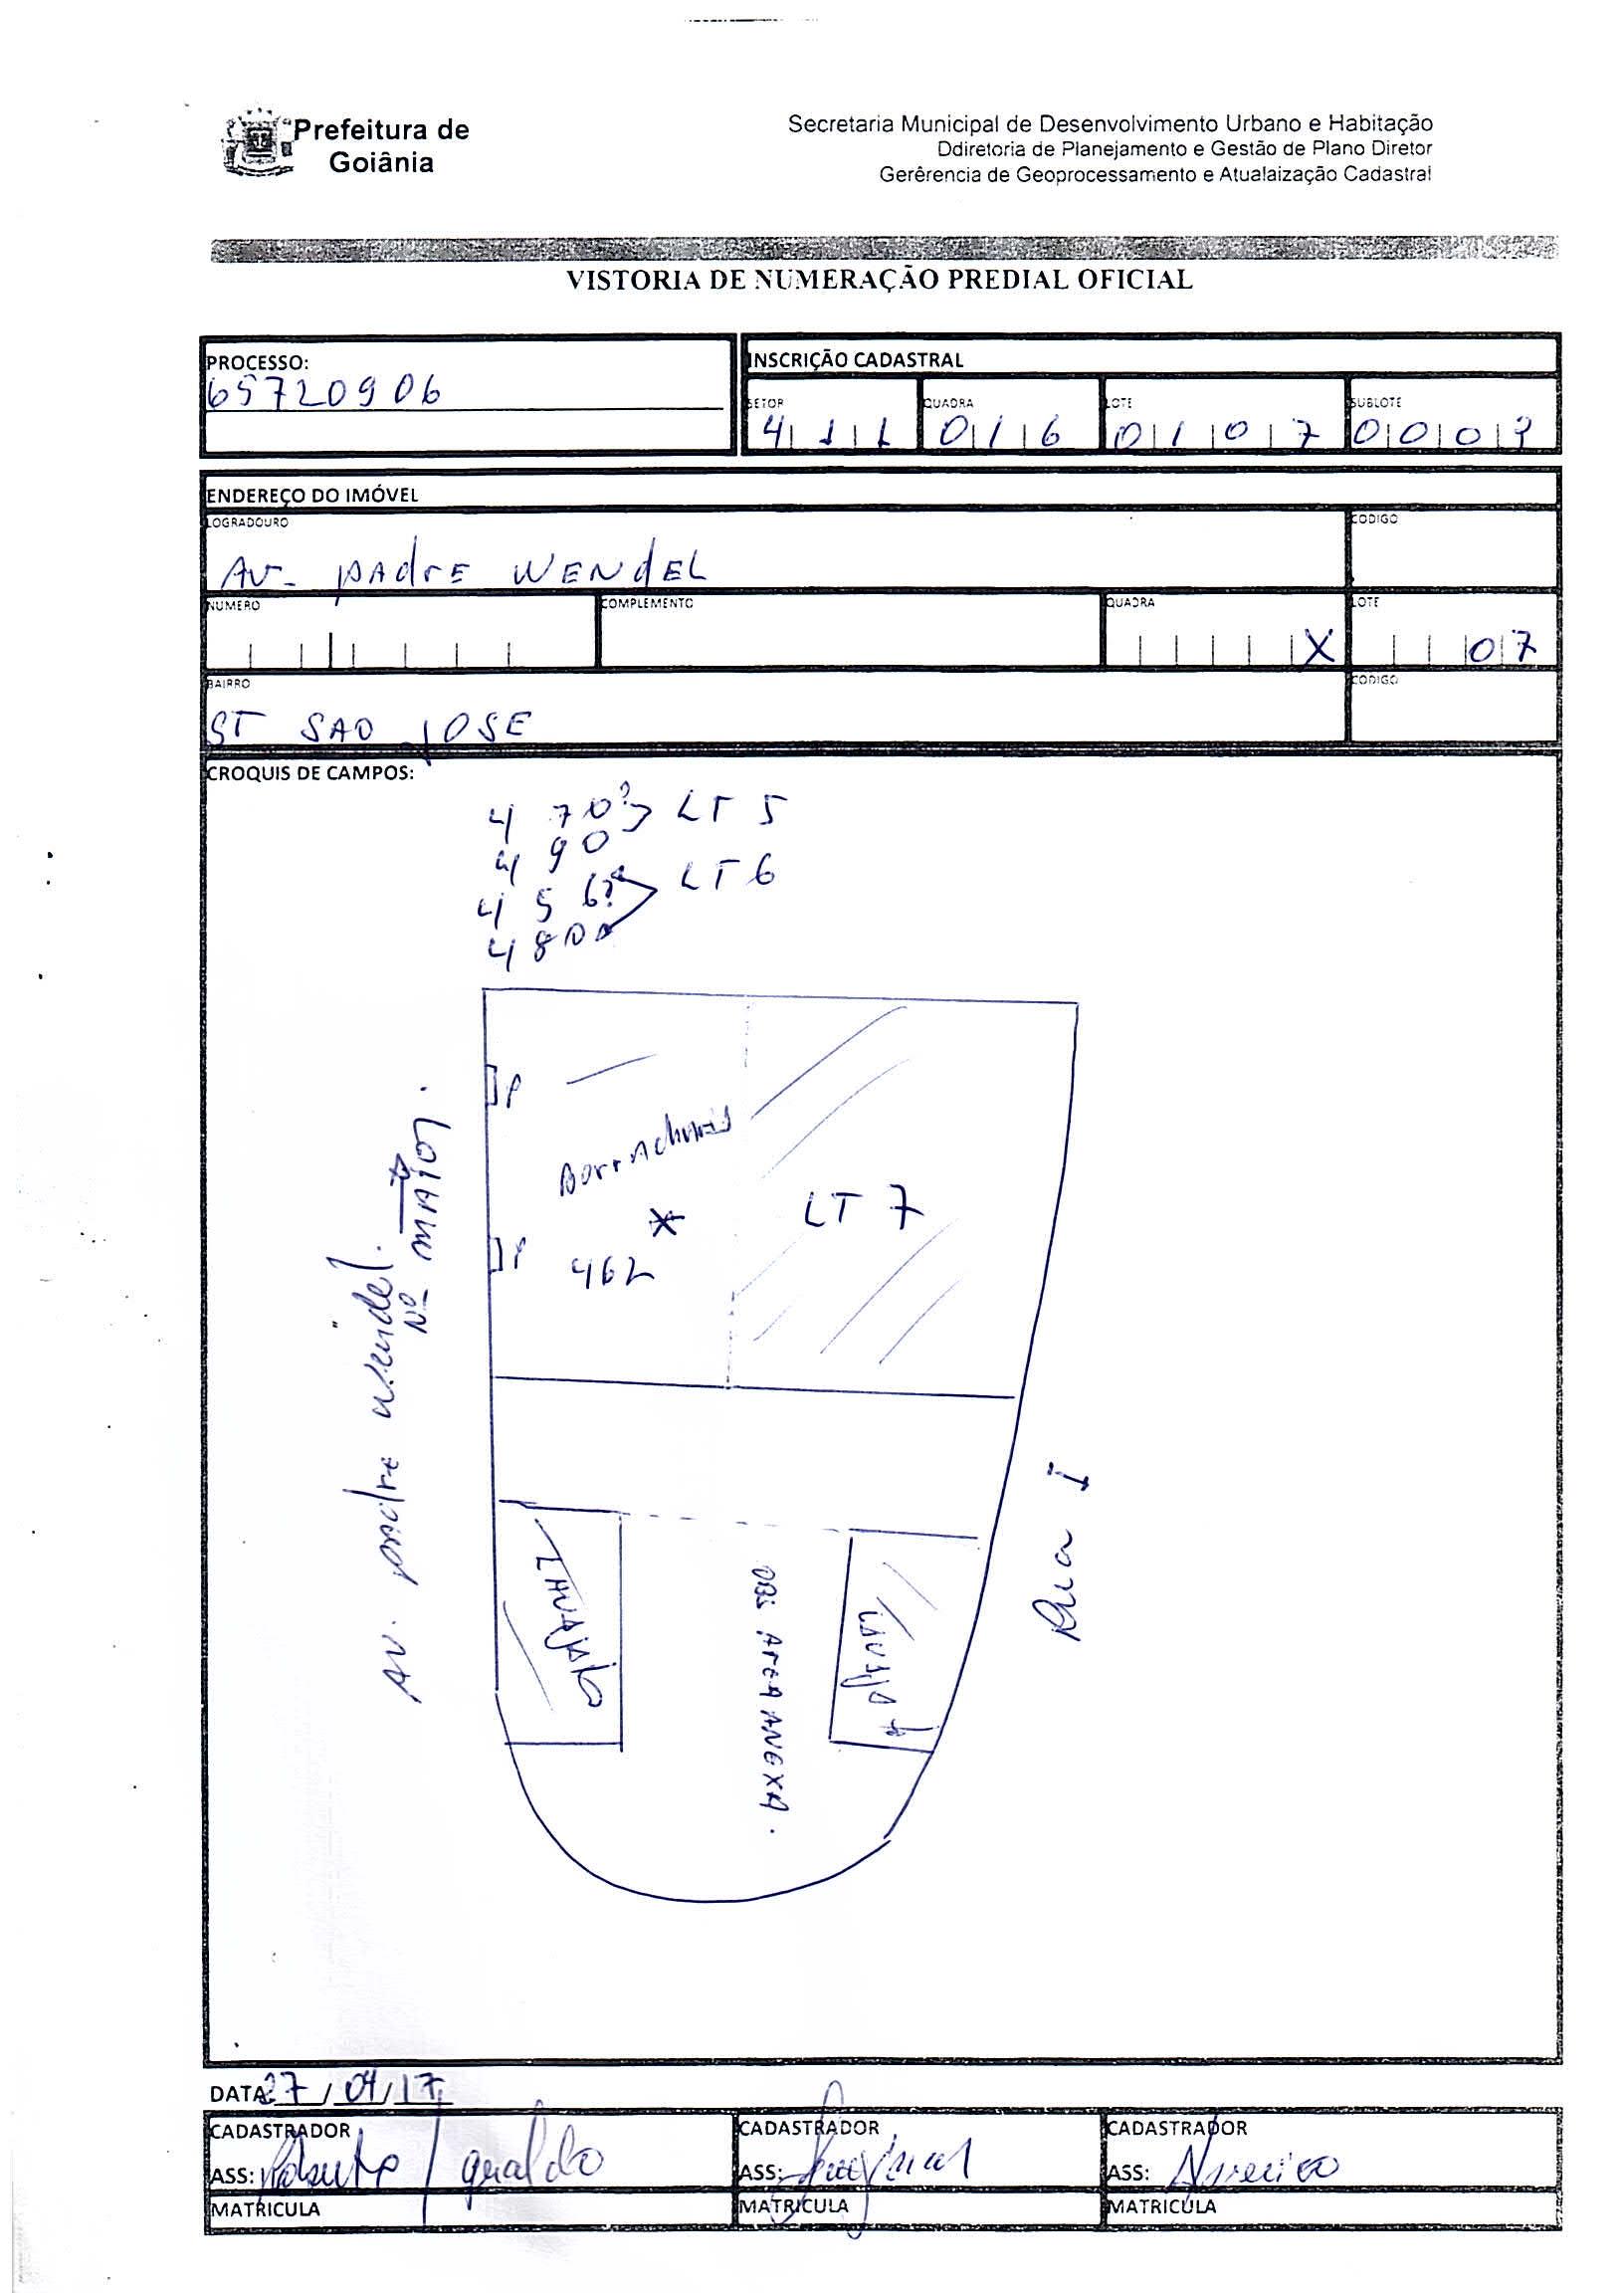 Prefeitura de
Goiânia
Secretaria Municipal de Desenvolvimento Urbano e Habitação
Ddiretoria de Planejamento e Gestão de Plano Diretor
Gerêrencia de Geoprocessamento e Atualaização Cadastral
VISTORIA DE NUMERAÇÃO PREDIAL OFICIAL
PROCESSO:
65720906
INSCRIÇÃO CADASTRAL
SETOR QUADRA LOTE SUBLOTE
4 1 1 0 1 6 0 1 0 7 0 0 0
ENDEREÇO DO IMÓVEL
LOGRADOURO CODIGO
AV- pAdrE WENdEL
NUMERO COMPLEMENTO QUADRA LOTE
X 0 7
BAIRRO CODIGO
ST SAO JOSE
CROQUIS DE CAMPOS:
4 70? LT 5
4 90
4 5 6? LT 6
4 80
P
Borracharia
LT 7
P 462
Av. padre wendel.
Nº MAior.
Rua I
LAVAjAto
OBS ArEA ANEXA.
LAVAjAto
DATA: 27 / 04 / 17
CADASTRADOR CADASTRADOR CADASTRADOR
ASS: Roberto / Geraldo ASS: ASS:
MATRICULA MATRICULA MATRICULA